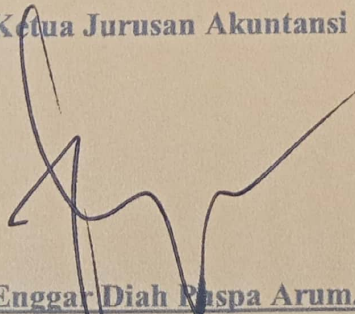 Ketua Jurusan Akuntansi
Enggar Diah Puspa Arum,